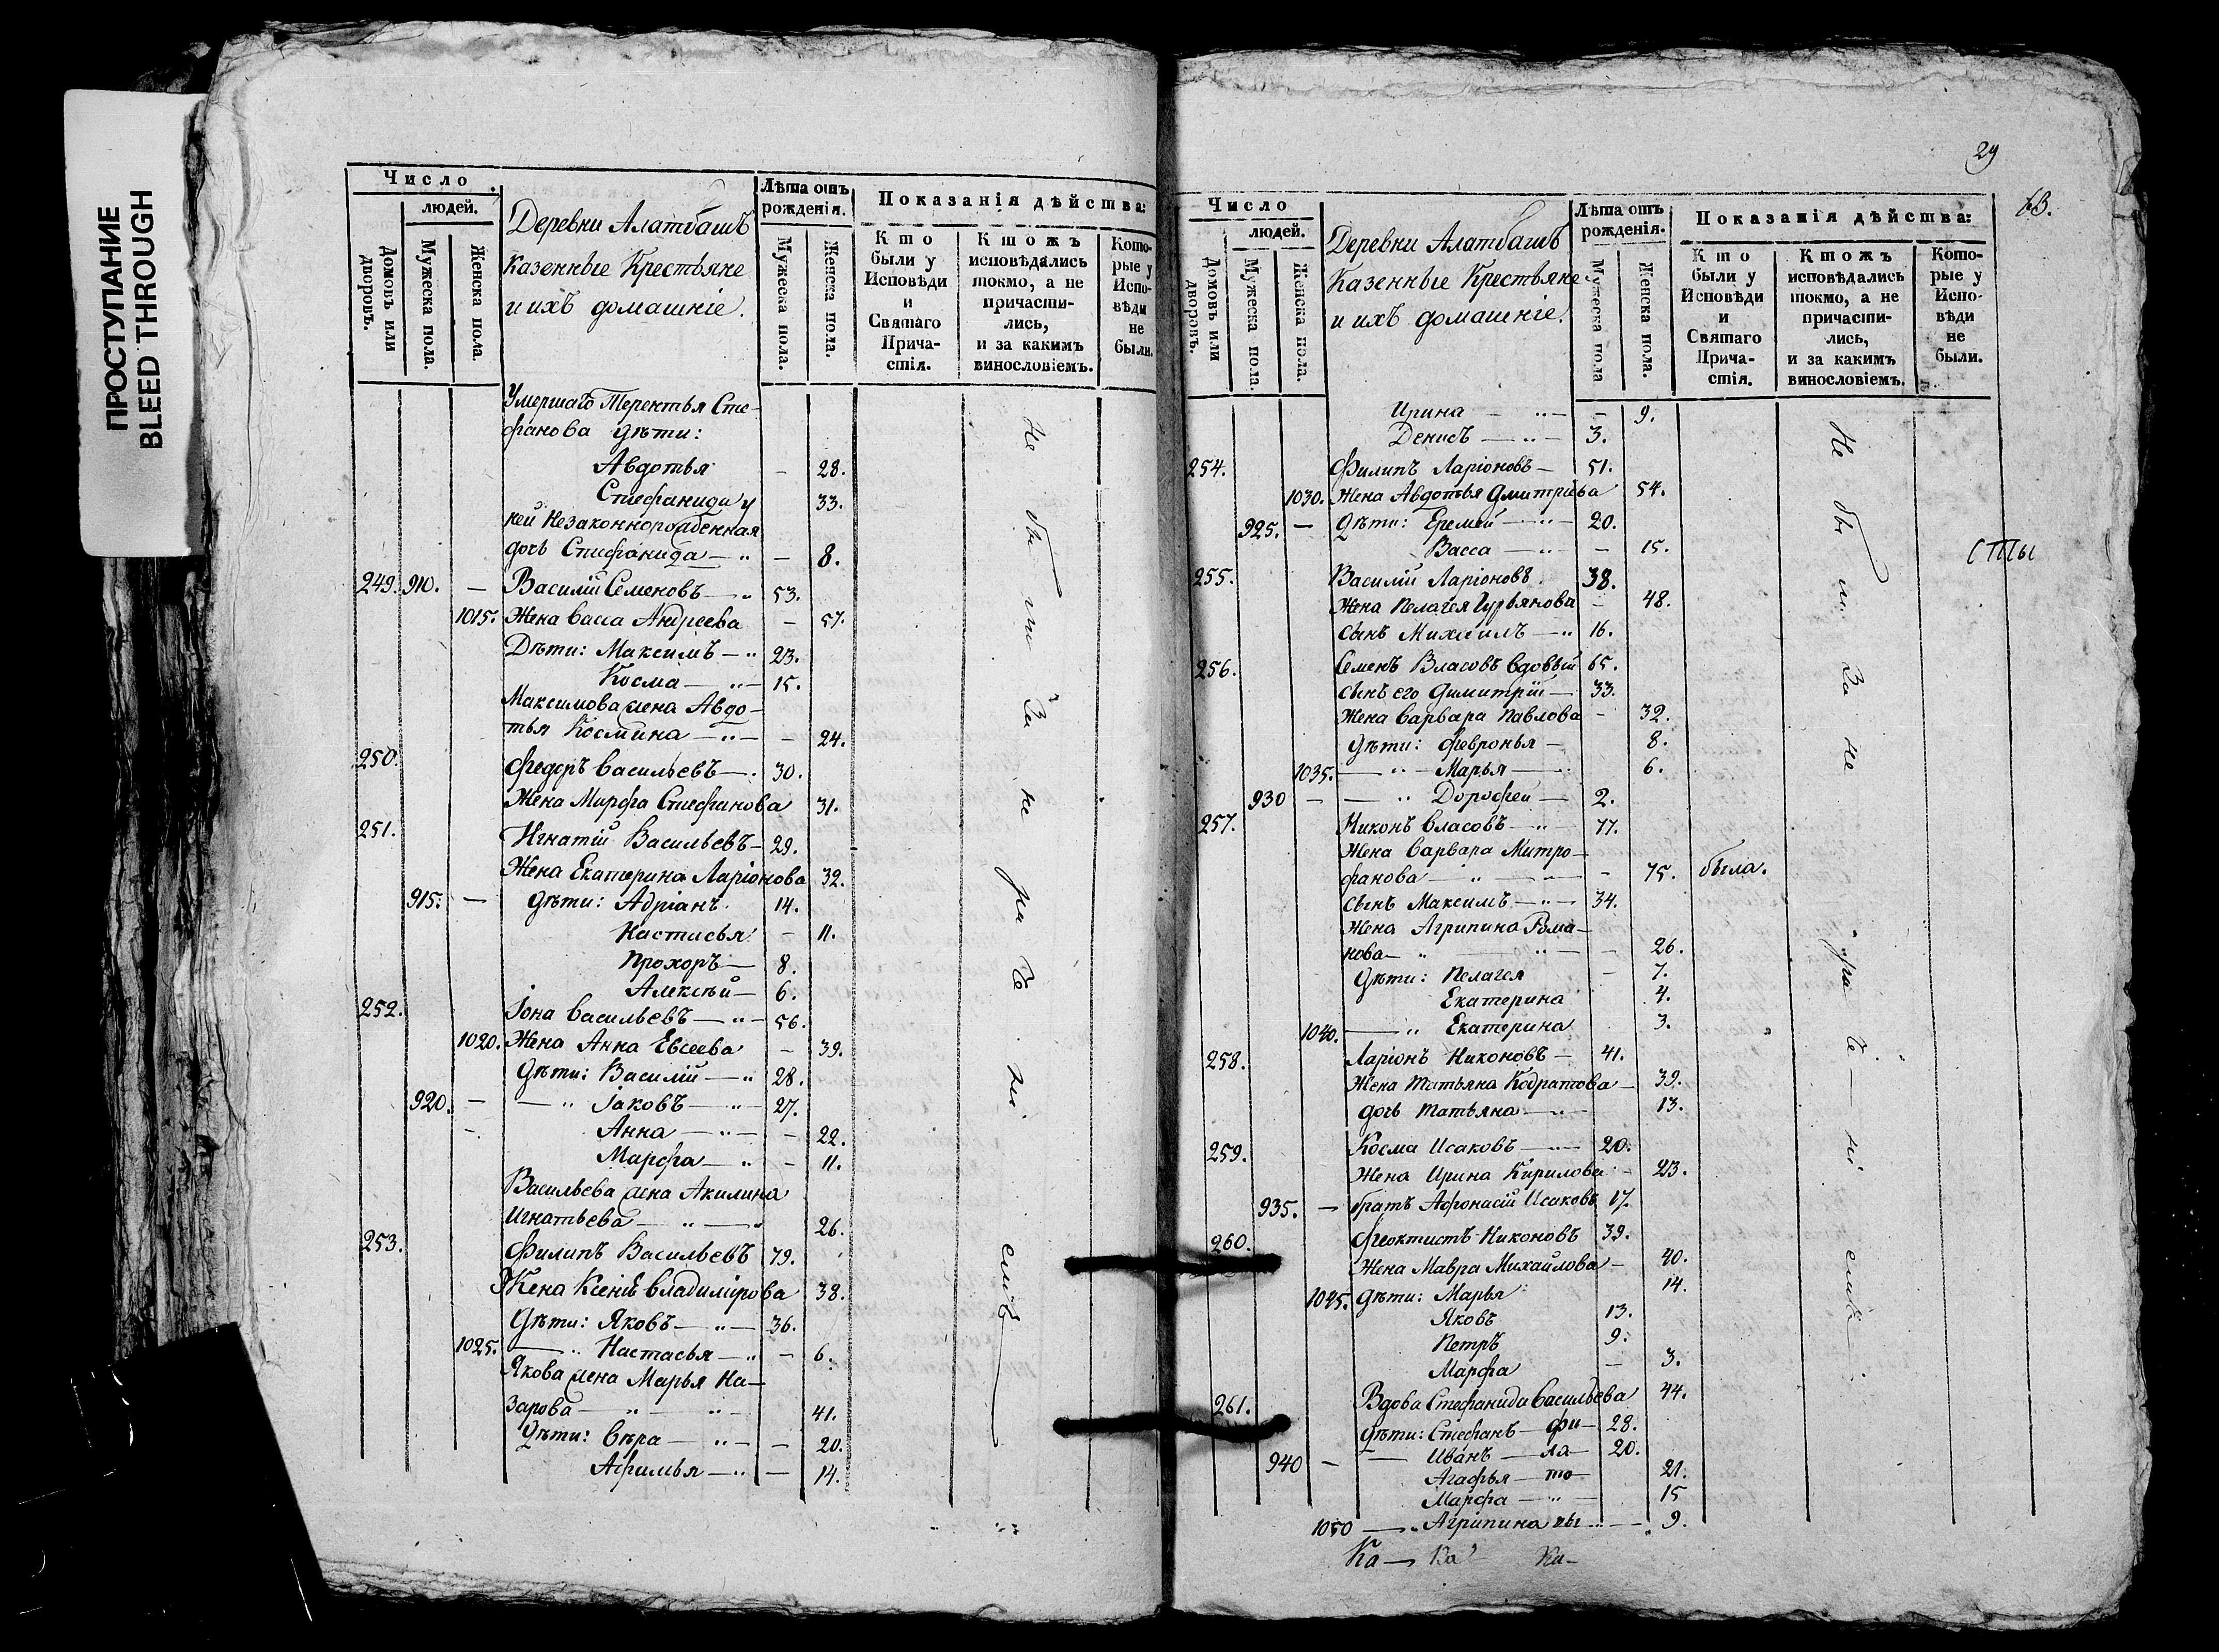 ПРОСТУПАНИЕ
BLEED THROUGH
Число
людей.
Домовъ или дворовъ.
Мужеска пола.
Женска пола.
Деревни Алатбашъ
Казенные Крестьяне
и ихъ домашніе.
Лѣта отъ рожденія.
Мужеска пола.
Женска пола.
Показанія дѣйства:
Кто были у Исповѣди и Святаго Причастія.
Ктожъ исповѣдались токмо, а не причастились, и за какимъ винословіемъ.
Которые у Исповѣди не были.
Умершаго Терентья Сте-
фанова дѣти:
Авдотья - 28.
Стефанида у 33.
ней Незаконнорожденная
дочь Стефанида — " — 8.
249. 910. — Василій Семеновъ — " 53.
1015. Жена Васса Андреева — 57.
Дѣти: Максимъ — " 23.
Косма — " — 15.
Максимова жена Авдо-
тья Космина — " — — 24.
250. Федоръ Васильевъ — . 30.
Жена Марфа Стефанова 31.
251. Игнатій Васильевъ — 29.
Жена Екатерина Ларіонова 32.
915. — дѣти: Адріанъ 14.
Настасья — 11.
Прохоръ — 8.
Алексѣй — 6.
252. Іона Васильевъ — " — 56.
1020. Жена Анна Евсеева — 39.
Дѣти: Василій — " 28.
920. — — " Іаковъ — " — 27.
Анна — " — — 22.
Марфа — " — 11.
Васильева жена Акилина
Игнатьева — " — " 26.
253. Филипъ Васильевъ 79.
Жена Ксенія Владимірова 38.
Дѣти: Яковъ — " — 36.
1025. — " Настасья — " — 6.
Якова жена Марья На-
зарова — " — " — 41.
Дѣти: Вѣра — " — — 20.
Афимья — " — 14.
Не были За нерачениемъ
29
Число
людей.
Домовъ или дворовъ.
Мужеска пола.
Женска пола.
Деревни Алатбашъ
Казенные Крестьяне
и ихъ домашніе.
Лѣта отъ рожденія.
Мужеска пола
Женска пола.
Показанія дѣйства:
Кто были у Исповѣди и Святаго Причастія.
Ктожъ исповѣдались токмо, а не причастились, и за какимъ винословіемъ.
Которые у Исповѣди не были.
Ирина — " — — 9.
Денисъ — " — 3.
254. Филипъ Ларіоновъ — 51.
1030. Жена Авдотья Дмитріева 54.
925. — дѣти: Еремѣй — " — 20.
Васса — " — — 15.
255. Василій Ларіоновъ 38.
Жена Пелагея Гурьянова — 48.
сынъ Михаилъ — " 16.
256. Семенъ Власовъ вдовый 65.
сынъ его Димитрій — 33.
Жена Варвара Павлова — 32.
дѣти: Февронья — 8.
1035. — " — Марья — 6.
930 — — " Дорофей — 2.
257. Никонъ Власовъ — " — 77.
Жена Варвара Митро-
фанова — " — — 75. была.
сынъ Максимъ — " — 34.
Жена Агрипина Рома-
нова — " — " — — 26.
дѣти: Пелагея — 7.
Екатерина 4.
1040. — " Екатерина 3.
258. Ларіонъ Никоновъ — 41.
Жена Татьяна Кодратова — 39.
дочь Татьяна — " — 13.
259. Косма Исаковъ — " — 20.
Жена Ирина Кирилова — 23.
935. — братъ Афонасій Исаковъ 17.
260. Феоктистъ Никоновъ 39.
Жена Мавра Михайлова — 40.
1045. дѣти: Марья 14.
Яковъ 13.
Петръ 9.
Марфа — 3.
261. Вдова Стефанида Васильева 44.
дѣти: Стефанъ — фи — 28.
940 — — Иванъ — ла — 20.
Агафья — то — 21.
Марфа — " — 15
1050 — " Агрипина вы " — 9.
Ка —
Не были За нерачениемъ